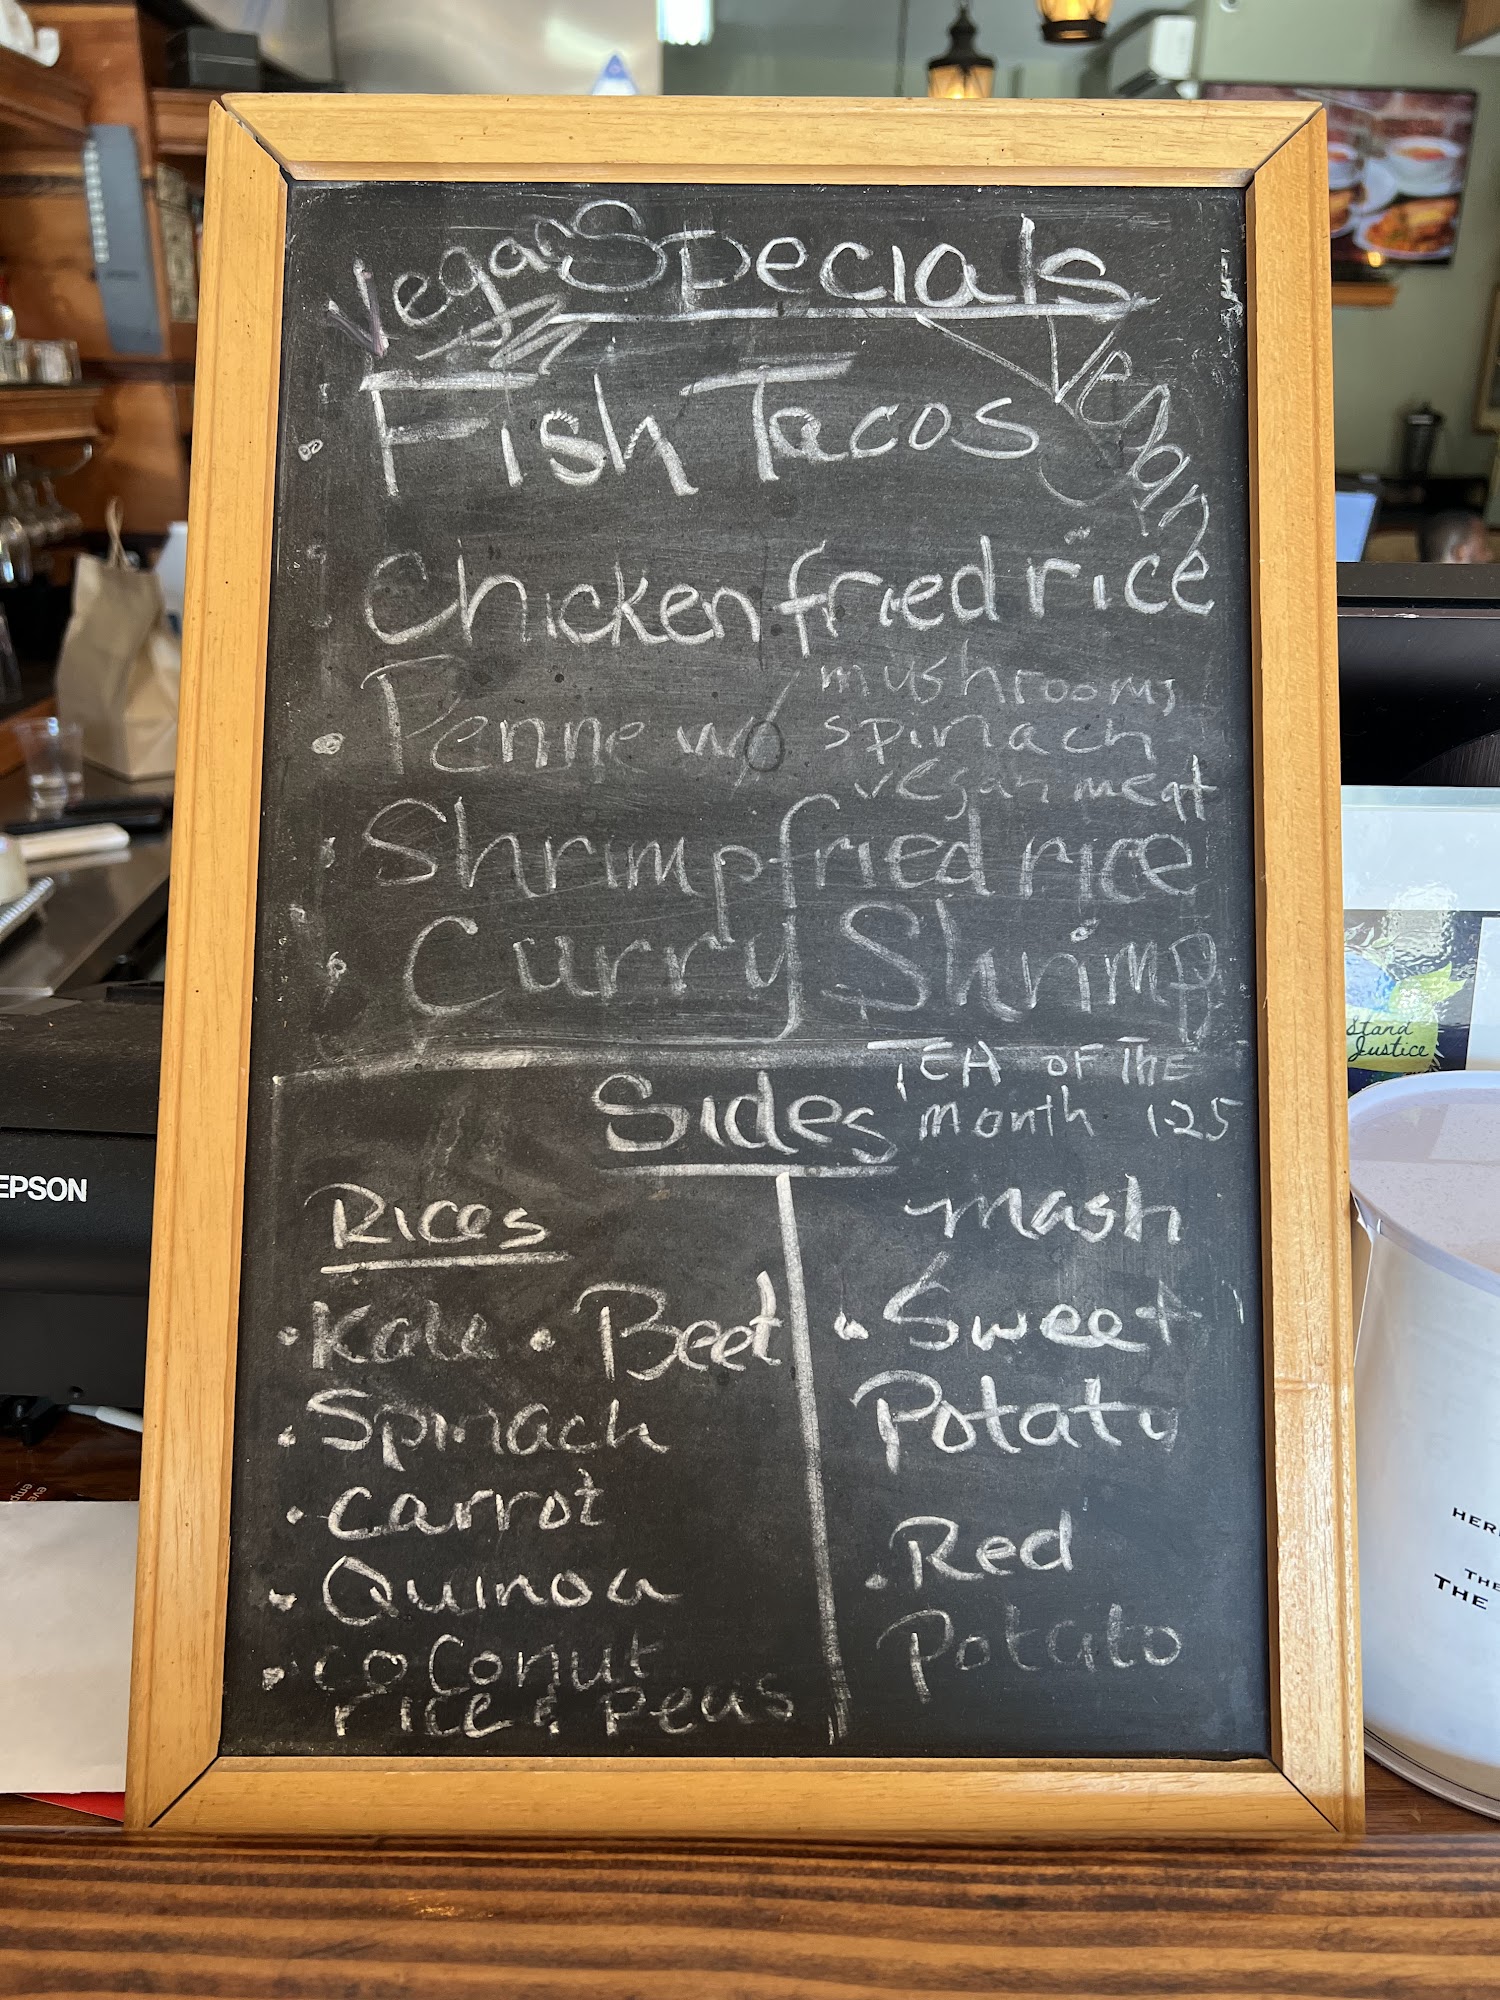 Vegan Specials
Vegan
• Fish Tacos
Chicken fried rice
• Penne w/ mushrooms
spinach
vegan meat
• Shrimp fried rice
• Curry Shrimp
TEA OF THE
month 125
Sides
Rices
• Kale • Beet
• Spinach
• Carrot
• Quinoa
• coconut
rice & peas
mash
• Sweet
Potato
• Red
Potato
EPSON
Stand
Justice
THE